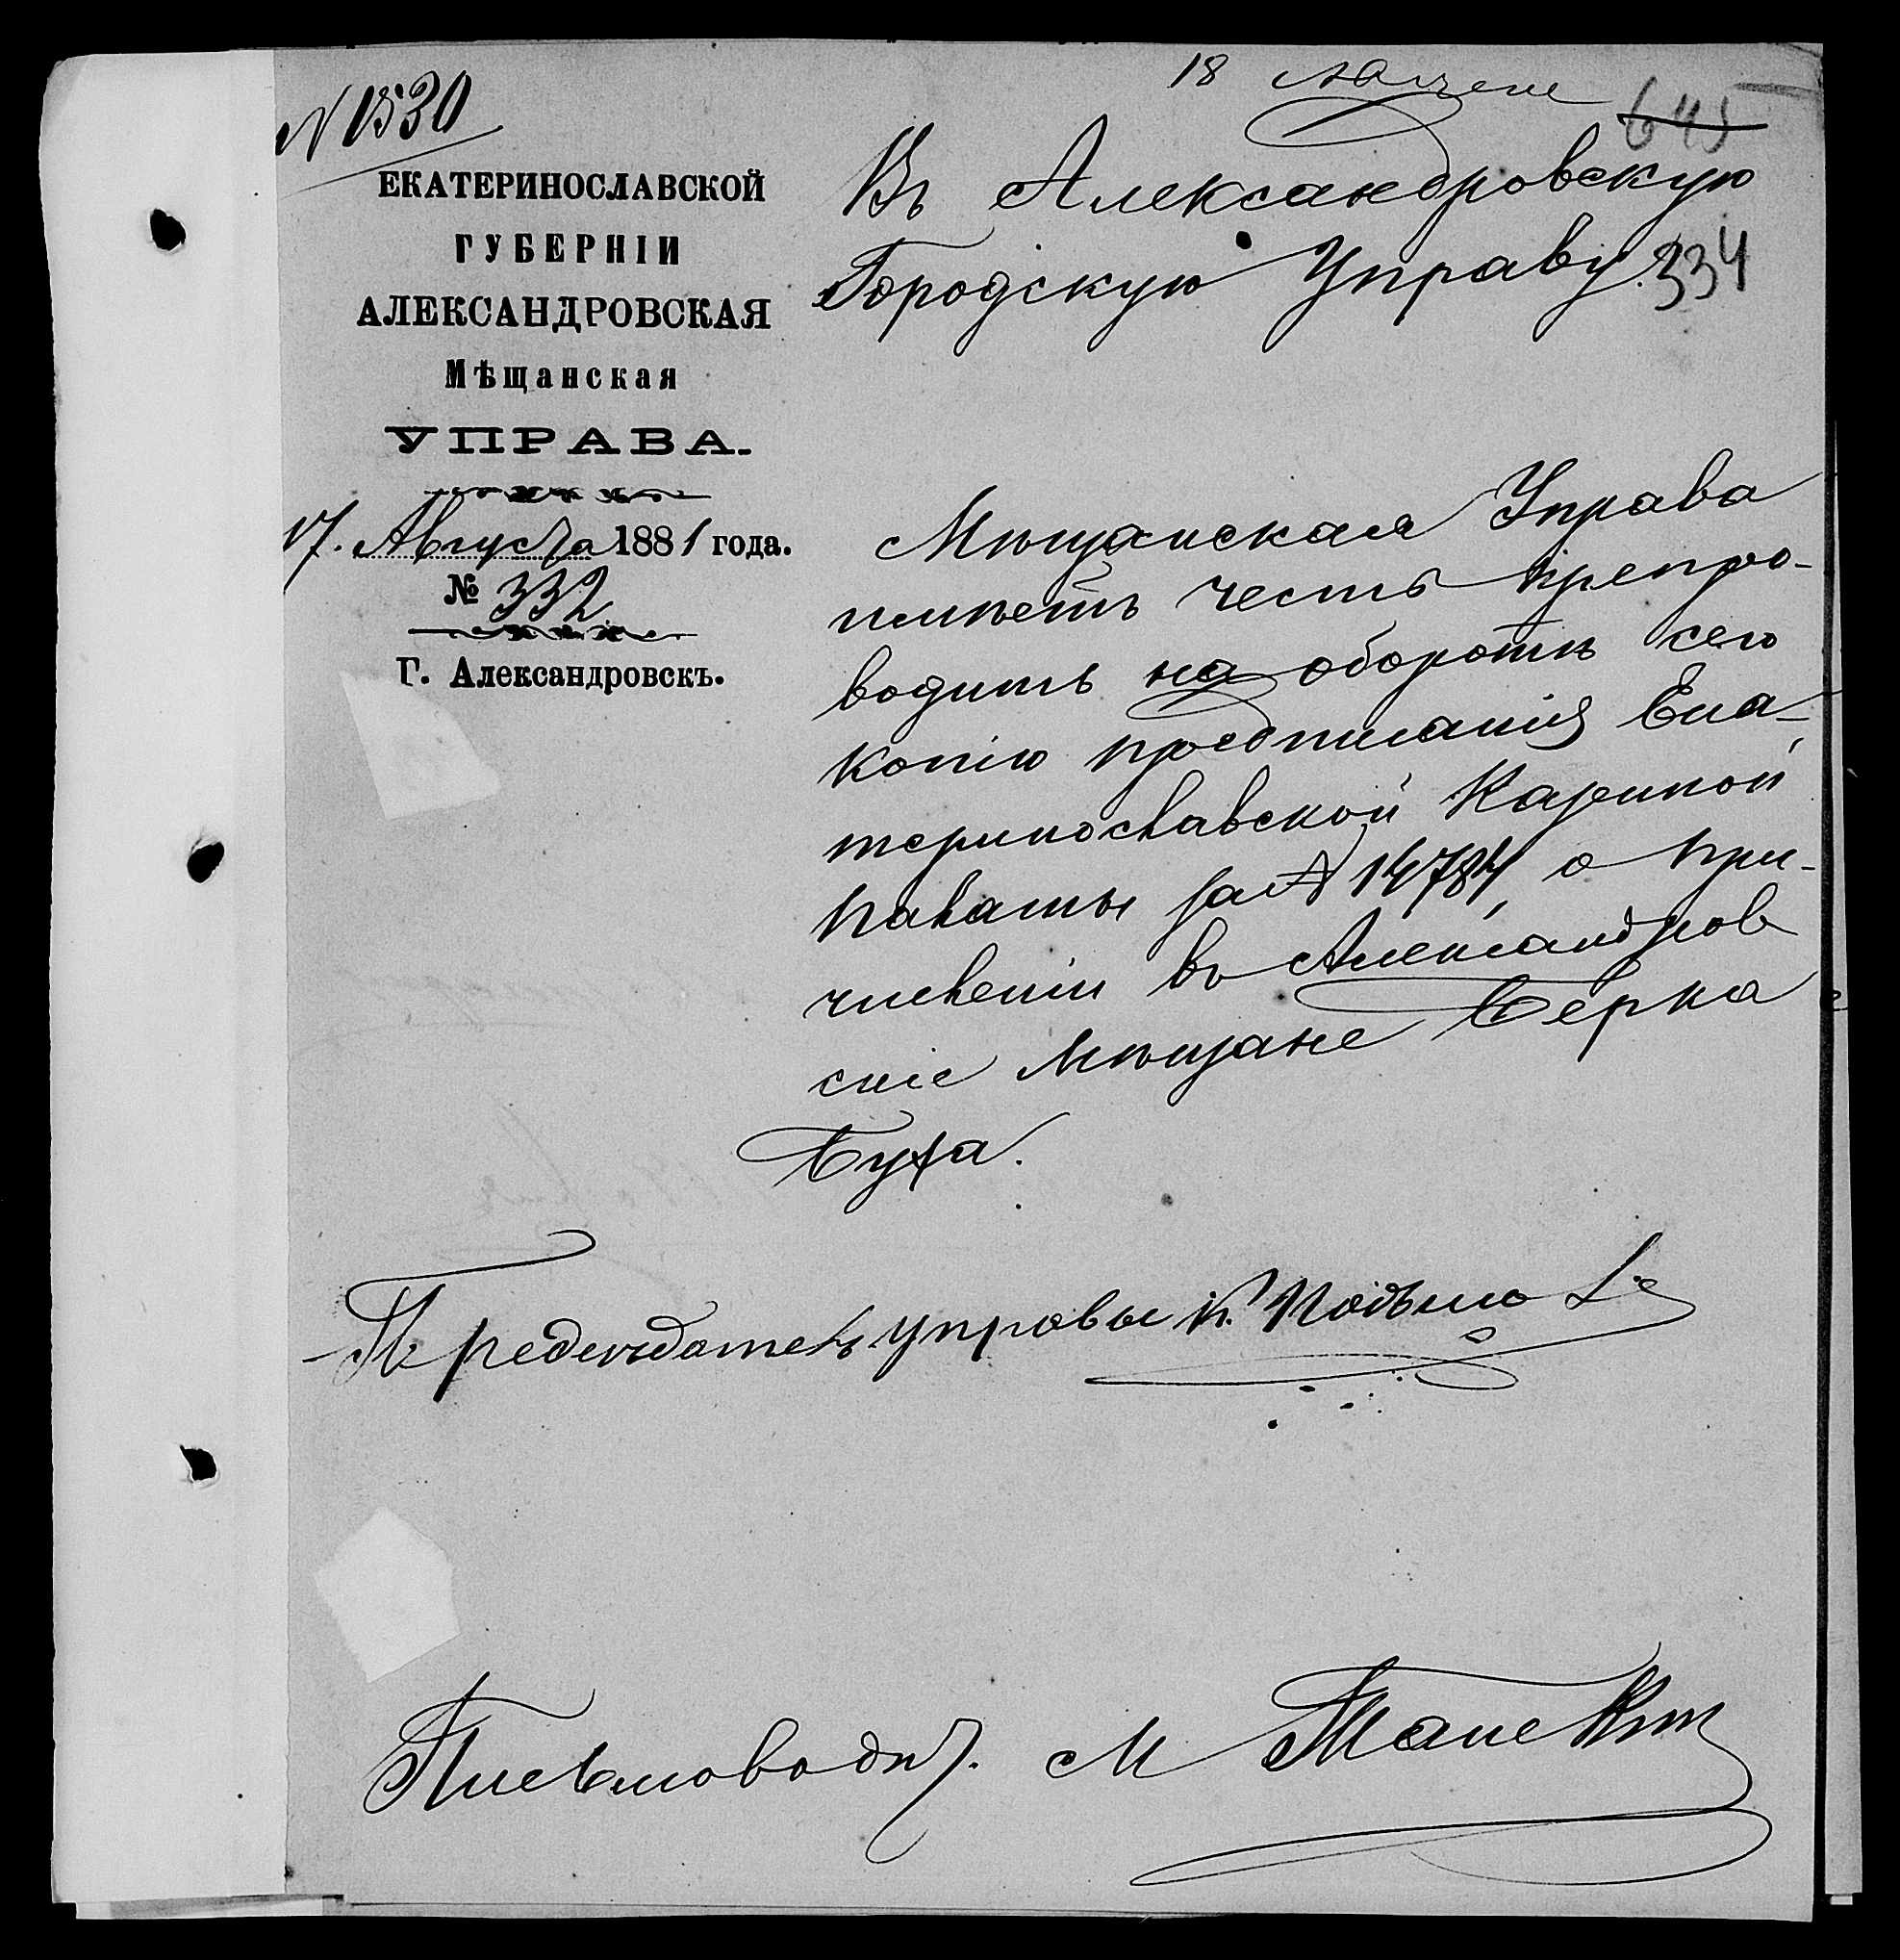 18 Августа
645
N 1530
ЕКАТЕРИНОСЛАВСКОЙ
ГУБЕРНІИ
АЛЕКСАНДРОВСКАЯ
Мѣщанская
УПРАВА.
17. Августа 1881 года.
№ 332
Г. Александровскъ.
Въ Александровскую
Городскую Управу.
334
Мѣщанская Управа
имѣетъ честь препро-
водить на оборотѣ сего
копію предписанія Ека-
теринославской Казенной
Палаты за N 14784, о при-
численіи въ Александров
скіе мѣщане Берка
Буха.
Председатель управы К.
Письмоводит. М